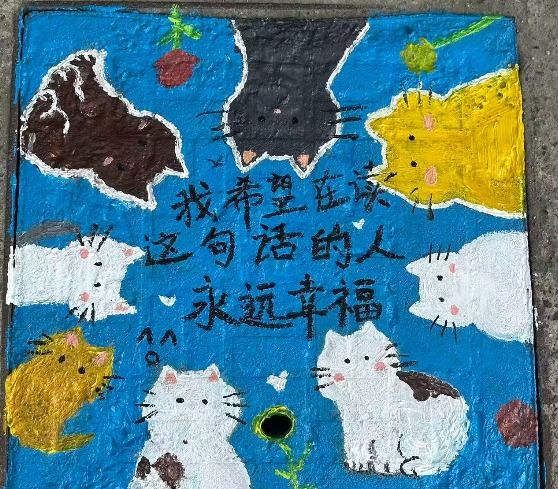 我希望在读
这句话的人
永远幸福